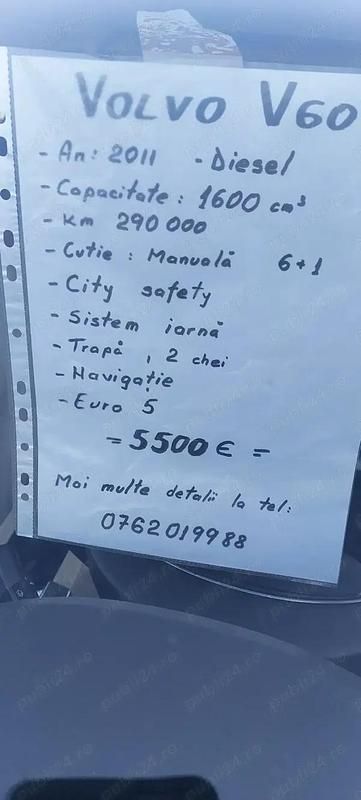 VOLVO V60
- An: 2011 - Diesel
- Capacitate: 1600 cm³
- Km 290 000
- Cutie: Manuală 6+1
- City safety
- Sistem iarnă
- Trapă, 2 chei
- Navigație
- Euro 5
= 5500 € =
Mai multe detalii la tel:
0762019988
publi24.ro